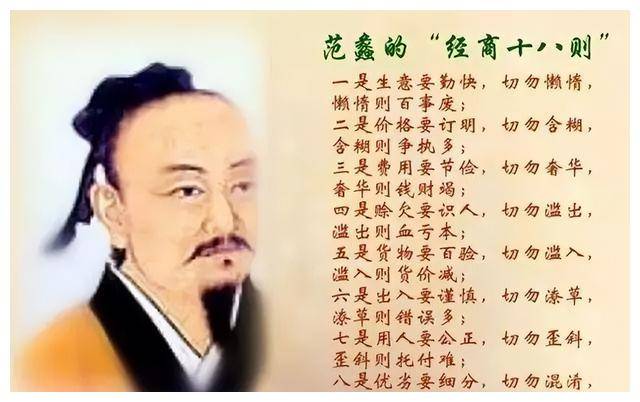 范蠡的“经商十八则”
一是生意要勤快，切勿懒惰，
懒惰则百事废；
二是价格要订明，切勿含糊，
含糊则争执多；
三是费用要节俭，切勿奢华，
奢华则钱财竭；
四是赊欠要识人，切勿滥出，
滥出则血亏本；
五是货物要百验，切勿滥入，
滥入则货价减；
六是出入要谨慎，切勿潦草，
潦草则错误多；
七是用人要公正，切勿歪斜，
歪斜则托付难；
八是优劣要细分，切勿混淆，